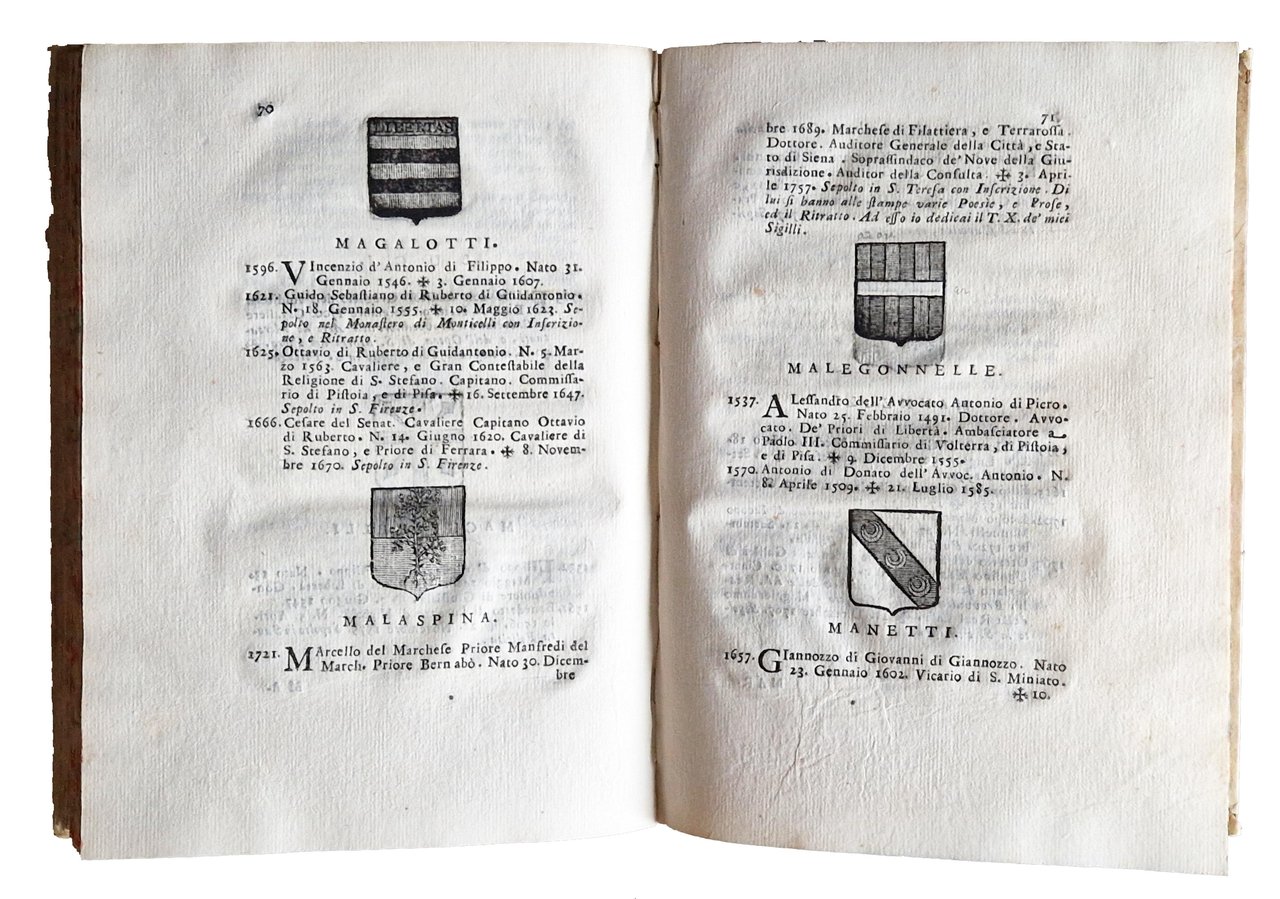 70
LIBERTAS
MAGALOTTI.
1596. VIncenzio d'Antonio di Filippo. Nato 31.
Gennaio 1546. ✠ 3. Gennaio 1607.
1621. Guido Sebaſtiano di Ruberto di Guidantonio.
N. 18. Gennaio 1555. ✠ 10. Maggio 1623. Se-
polto nel Monaſtero di Monticelli con Inſcrizio-
ne, e Ritratto.
1625. Ottavio di Ruberto di Guidantonio. N. 5. Mar-
zo 1563. Cavaliere, e Gran Conteſtabile della
Religione di S. Stefano. Capitano. Commiſſa-
rio di Piſtoia, e di Piſa. ✠ 16. Settembre 1647.
Sepolto in S. Firenze.
1666. Ceſare del Senat. Cavaliere Capitano Ottavio
di Ruberto. N. 14. Giugno 1620. Cavaliere di
S. Stefano, e Priore di Ferrara. ✠ 8. Novem-
bre 1670. Sepolto in S. Firenze.
MALASPINA.
1721. MArcello del Marcheſe Priore Manfredi del
March. Priore Bernabò. Nato 30. Dicem-
bre
71
bre 1689. Marcheſe di Filattiera, e Terraroſſa.
Dottore. Auditore Generale della Città, e Sta-
to di Siena. Sopraſſindaco de' Nove della Giu-
risdizione. Auditor della Conſulta. ✠ 3. Apri-
le 1757. Sepolto in S. Tereſa con Inſcrizione. Di
lui ſi hanno alle ſtampe varie Poesie, e Proſe,
ed il Ritratto. Ad eſſo io dedicai il T. X. de' miei
Sigilli.
MALEGONNELLE.
1537. ALeſſandro dell'Avvocato Antonio di Piero.
Nato 25. Febbraio 1491. Dottore. Avvo-
cato. De' Priori di Libertà. Ambaſciatore a
Paolo III. Commiſſario di Volterra, di Piſtoia,
e di Piſa. ✠ 9. Dicembre 1555.
1570. Antonio di Donato dell'Avvoc. Antonio. N.
8. Aprile 1509. ✠ 21. Luglio 1585.
MANETTI.
1657. GIannozzo di Giovanni di Giannozzo. Nato
23. Gennaio 1602. Vicario di S. Miniato.
✠ 10.